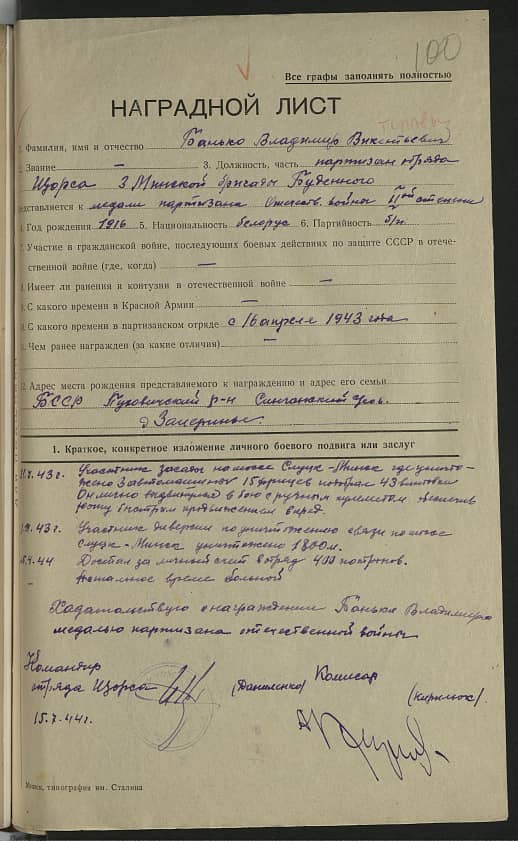 100
Все графы заполнять полностью
НАГРАДНОЙ ЛИСТ
Фамилия, имя и отчество Банько Владимир Викентьевич
2. Звание — 3. Должность, часть партизан отряда
Щорса 3 Минской бригады Буденного
представляется к медали партизана Отечеств. войны II ой степени
4. Год рождения 1916 5. Национальность белорус 6. Партийность б/п
Участие в гражданской войне, последующих боевых действиях по защите СССР в отече-
ственной войне (где, когда) —
Имеет ли ранения и контузии в отечественной войне —
С какого времени в Красной Армии —
С какого времени в партизанском отряде с 16 апреля 1943 года
Чем ранее награжден (за какие отличия) —
Адрес места рождения представляемого к награждению и адрес его семьи
БССР Пуховичский р-н
д.
1. Краткое, конкретное изложение личного боевого подвига или заслуг
43 г. Участник засады на шоссе Слуцк-Минск где уничто-
жено 3 автомашины 15 фрицев 43 винтовки
Он лично в бою с ручным пулеметом
быстрым продвижением вперед.
43 г. Участник диверсии по уничтожению связи по шоссе
Слуцк-Минск уничтожено 1800 м.
4.44 Достал за личный счет в отряд 400 патронов.
время больной
Ходатайствую о награждении Банько Владимира
медалью партизана отечественной войны
Командир
отряда Щорса (Даниленко) Комисар (Кирилюк)
15.7.44 г.
Минск, типография им. Сталина